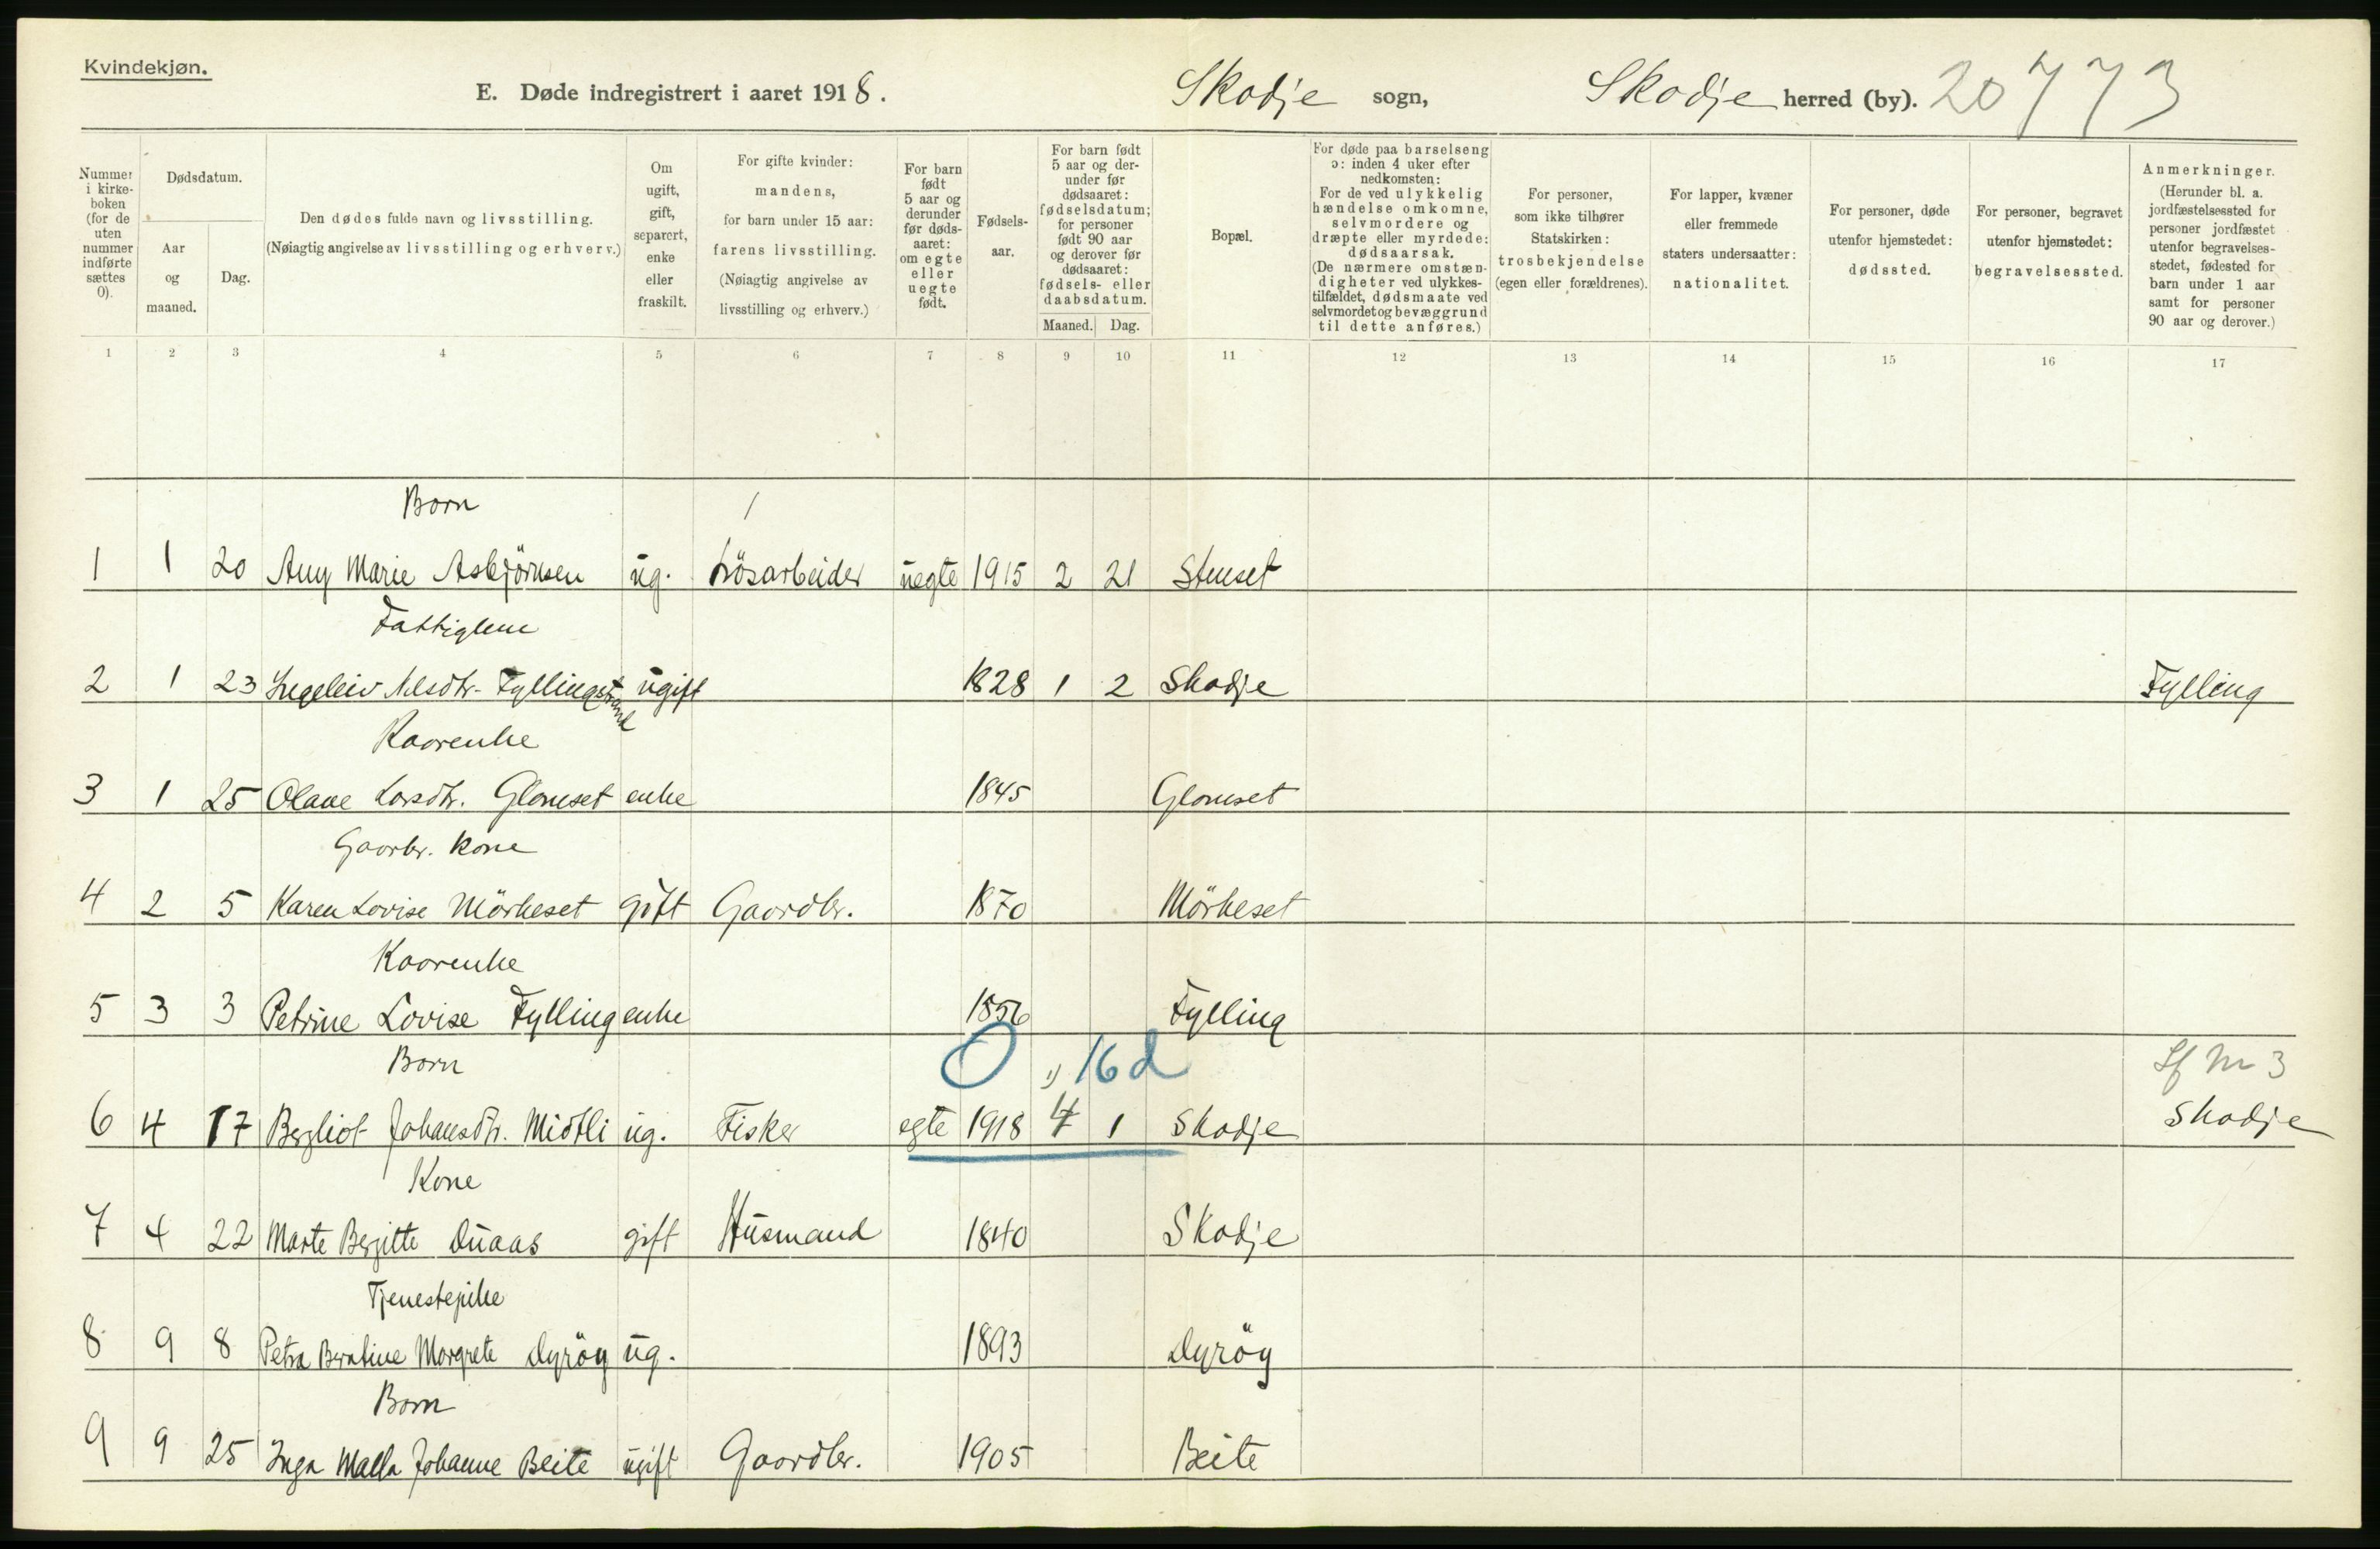 Kvindekjøn.
E. Døde indregistrert i aaret 1918. Skodje sogn, Skodje herred (by). 20773
Nummer i kirke- boken (for de uten nummer indførte sættes 0).
Dødsdatum.
Aar og maaned.
Dag.
Den dødes fulde navn og livsstilling.
(Nøiagtig angivelse av livsstilling og erhverv.)
Om ugift, gift, separert, enke eller fraskilt.
For gifte kvinder: mandens, for barn under 15 aar: farens livsstilling. (Nøiagtig angivelse av livsstilling og erhverv.)
For barn født 5 aar og derunder før døds- aaret: om egte eller uegte født.
Fødsels- aar.
For barn født 5 aar og der- under før dødsaaret: fødselsdatum; for personer født 90 aar og derover før dødsaaret: fødsels- eller daabsdatum.
Maaned. Dag.
Bopæl.
For døde paa barselseng ɔ: inden 4 uker efter nedkomsten: For de ved ulykkelig hændelse omkomne, selvmordere og dræpte eller myrdede: dødsaarsak. (De nærmere omstæn- digheter ved ulykkes- tilfældet, dødsmaate ved selvmordet og bevæggrund til dette anføres.)
For personer, som ikke tilhører Statskirken: trosbekjendelse (egen eller forældrenes).
For lapper, kvæner eller fremmede staters undersaatter: nationalitet.
For personer, døde utenfor hjemstedet: dødssted.
For personer, begravet utenfor hjemstedet: begravelsessted.
Anmerkninger. (Herunder bl. a. jordfæstelsessted for personer jordfæstet utenfor begravelses- stedet, fødested for barn under 1 aar samt for personer 90 aar og derover.)
1 2 3 4 5 6 7 8 9 10 11 12 13 14 15 16 17
Born
1 1 20 Any Marie Asbjörnsen ug. Lösarbeider uegte 1915 2 21 Stenset
Fattiglem
2 1 23 Ingeleiv Nlsdtr. Fyllingstrand ugift 1828 1 2 Skodje Fylling
Kaarenke
3 1 25 Olave Larsdtr. Glomset enke 1845 Glomset
Gaardbr. kone
4 2 5 Karen Lovise Mörkeset gift Gaardbr. 1870 Mörkeset
Kaarenke
5 3 3 Petrine Lovise Fylling enke 1856 Fylling
Born 0 1) 16 d
6 4 17 Bergliot Johansdtr. Midtli ug. Fisker egte 1918 4 1 Skodje Skodje
Kone
7 4 22 Marte Bergitte Duaas gift Husmand 1840 Skodje
Tjenestepike
8 9 8 Petra Berntine Margrete Dyröy ug. 1893 Dyröy
Born
9 9 25 Inga Malla Johanne Beite ugift Gaardbr. 1905 Beite